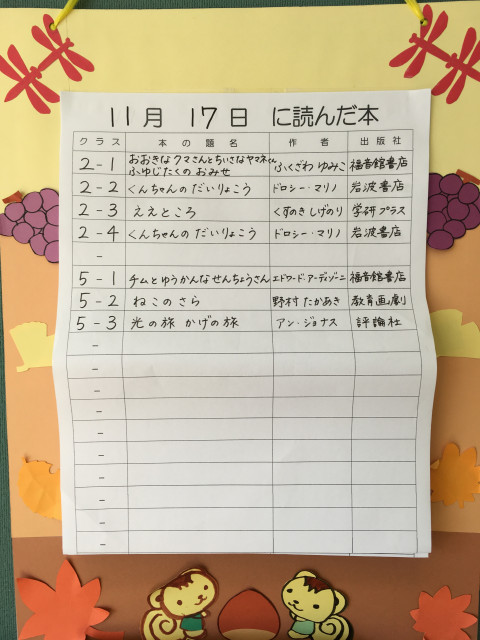 11月 17日 に読んだ本
クラス 本の題名 作者 出版社
2-1 おおきなクマさんとちいさなヤマネくん ふゆじたくの おみせ ふくざわ ゆみこ 福音館書店
2-2 くんちゃんの だいりょこう ドロシー・マリノ 岩波書店
2-3 ええところ くすのき しげのり 学研プラス
2-4 くんちゃんの だいりょこう ドロシー・マリノ 岩波書店
-
5-1 チムとゆうかんなせんちょうさん エドワード・アーディゾーニ 福音館書店
5-2 ねこのさら 野村 たかあき 教育画劇
5-3 光の旅 かげの旅 アン・ジョナス 評論社
-
-
-
-
-
-
-
-
-
-